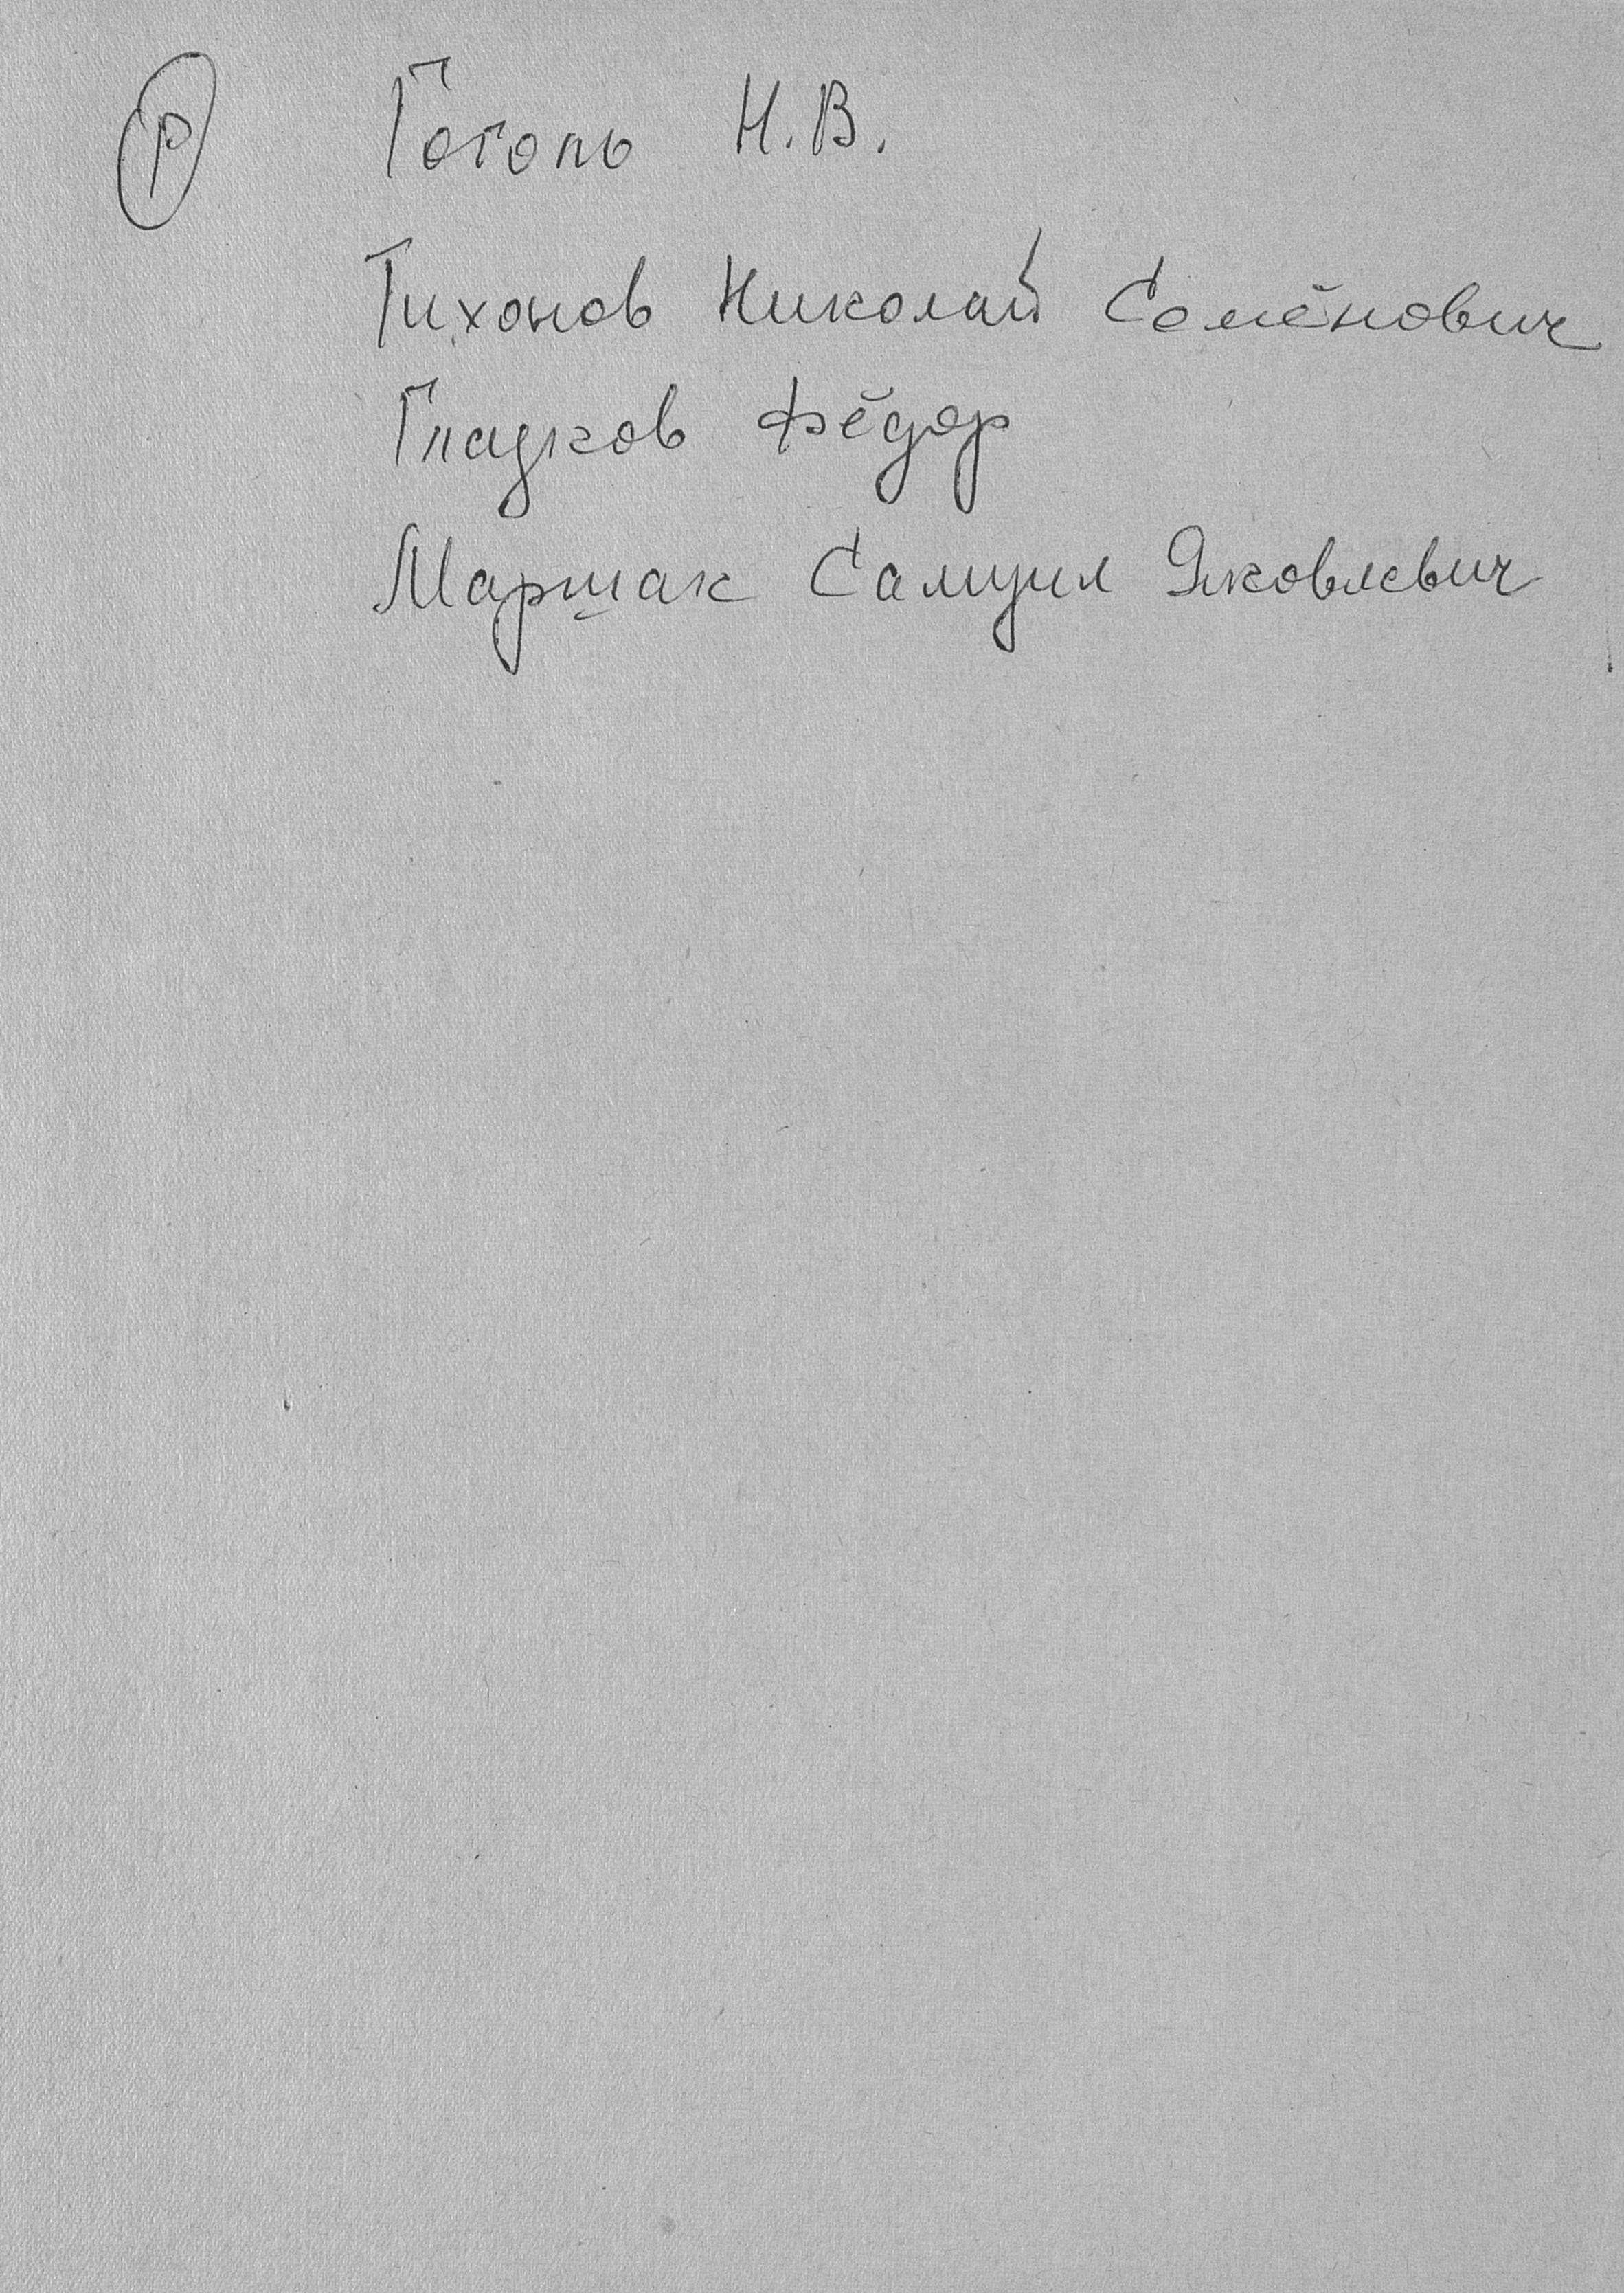 Р Гоголь Н.В.
Тихонов Николай Семёнович
Гладков Фёдор
Маршак Самуил Яковлевич